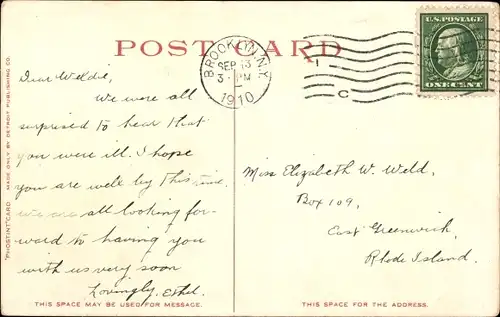 POST CARD
BROOKLYN, N.Y.
SEP 13
3 - PM
1910
1
C
U.S. POSTAGE
ONE CENT
Dear Weldie,
We were all
surprised to hear that
you were ill. I hope
you are well by this time.
we are all looking for-
ward to having you
with us very soon
Lovingly, Ethel.
Miss Elizabeth W. Weld,
Box 109,
East Greenwich,
Rhode Island.
"PHOSTINT" CARD MADE ONLY BY DETROIT PUBLISHING CO.
THIS SPACE MAY BE USED FOR MESSAGE.
THIS SPACE IS FOR THE ADDRESS.